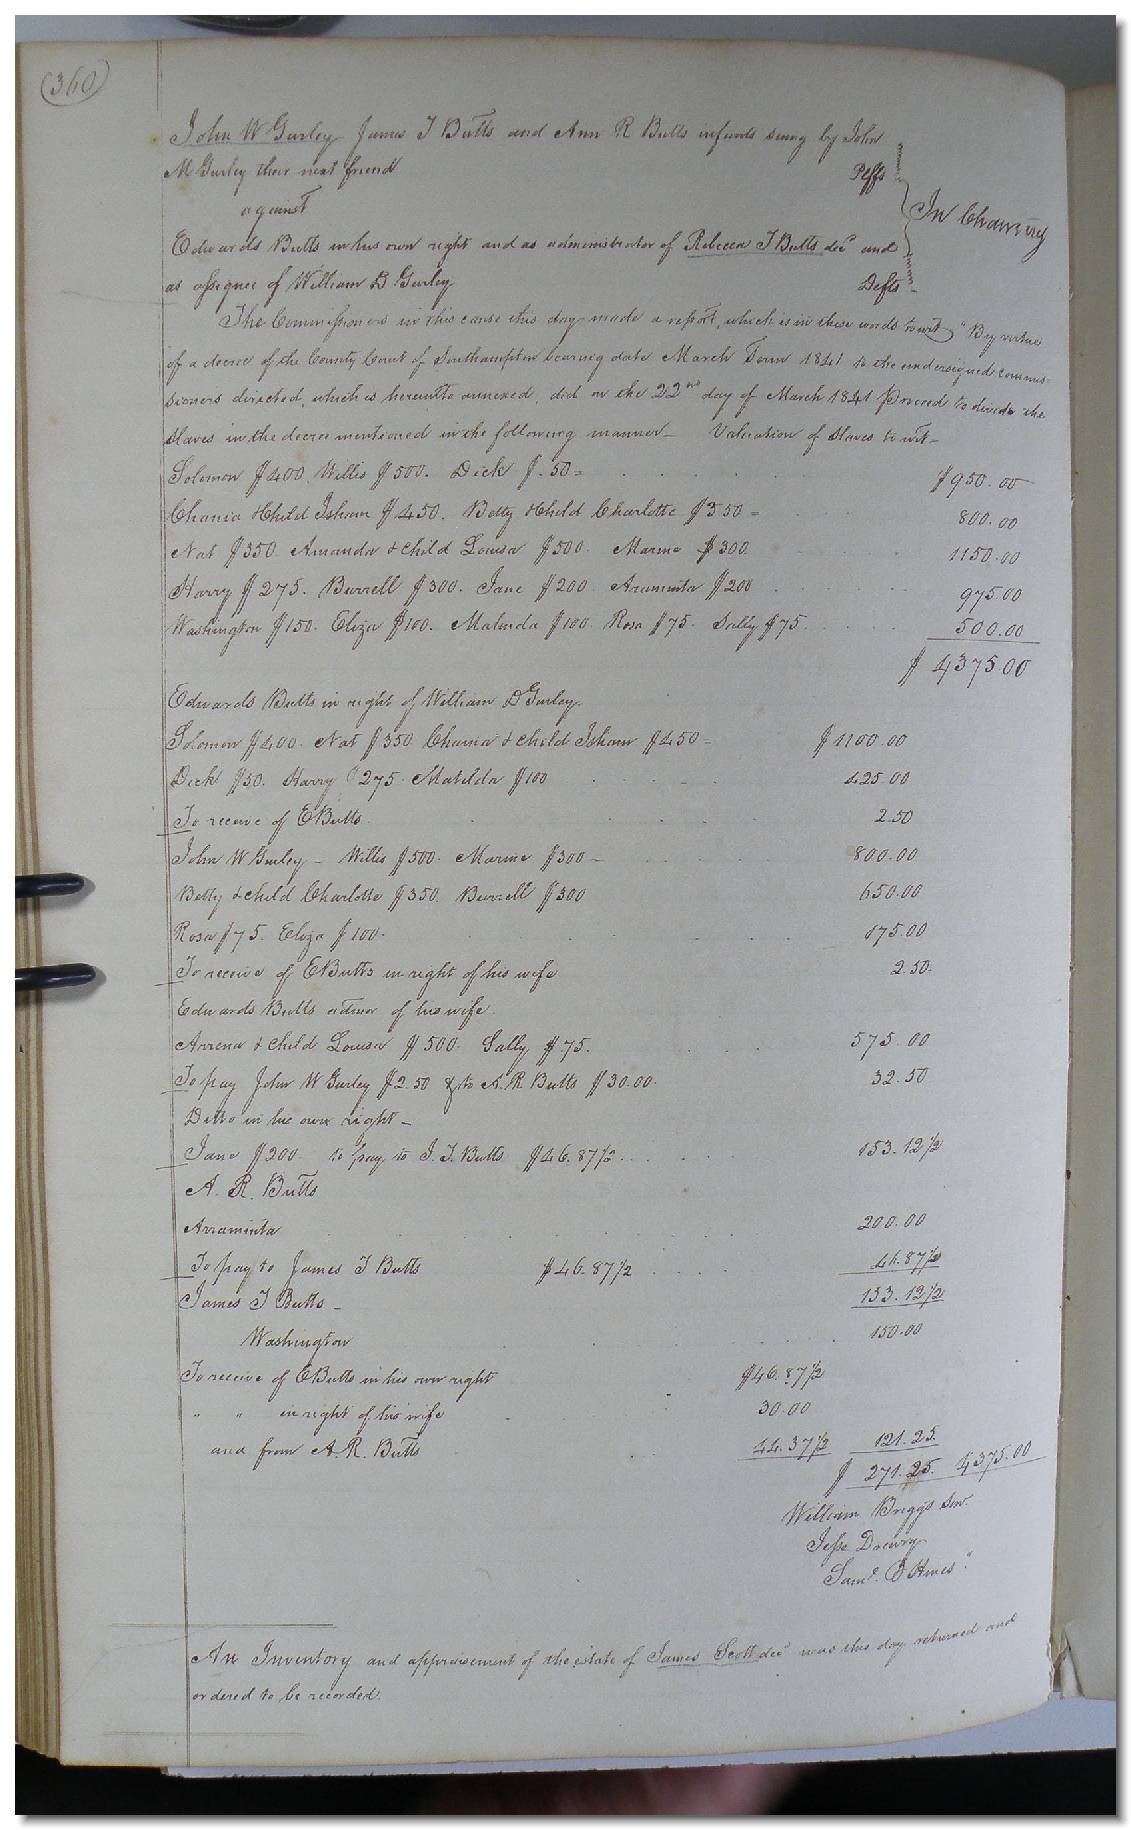 (360)
John W Gurley James T Butts and Ann R Butts infants suing by John
M Gurley their next friend Plffs
against
In Chancery
Edwards Butts in his own right and as administrator of Rebecca T Butts decd and
as assignee of William D Gurley Defts
The Commissioners in this cause this day made a report, which is in these words to wit "By virtue
of a decree of the County Court of Southampton bearing date March Term 1841 to the undersigned commis-
sioners directed, which is hereunto annexed, did on the 22nd day of March 1841 proceed to divide the
slaves in the decree mentioned in the following manner – Valuation of slaves to wit –
Solomon $400 Willis $500. Dick $.50 = $950.00
Chania & Child Isham $450. Betty & Child Charlotte $350 = 800.00
Nat $350 Amanda & child Louisa $500. Marina $300. 1150.00
Harry $275. Burrell $300. Jane $200 Araminta $200 975.00
Washington $150. Eliza $100. Malinda $100 Rosa $75. Sally $75. 500.00
$4375.00
Edwards Butts in right of William D Gurley.
Solomon $400. Nat $350 Chania & child Isham $450 – $1100.00
Dick $50. Harry $275. Matilda $100 425.00
To receive of E Butts 2.50
John W Gurley – Willis $500. Marina $300 – 800.00
Betty & child Charlotte $350. Burrell $300 650.00
Rosa $75. Eliza $100. 175.00
To receive of E Butts in right of his wife 2.50.
Edwards Butts admor of his wife.
Arrena & child Louisa $500. Sally $75. 575.00
To pay John W Gurley $2.50 & to A. R. Butts $30.00. 32.50
Ditto in his own right –
Jane $200 to pay to J. T. Butts $46.87 1/2 153.12 1/2
A. R. Butts
Arraminta 200.00
To pay to James T Butts $46.87 1/2 46.87 1/2
James T Butts – 153.12 1/2
Washington 150.00
To receive of E Butts in his own right $46.87 1/2
" " in right of his wife 30.00
and from A. R. Butts 44.37 1/2 121.25.
$ 271.25. 4375.00
William Briggs Snr.
Jesse Drewry
Saml. B Hines".
An Inventory and appraisement of the estate of James Scott decd was this day returned and
ordered to be recorded.